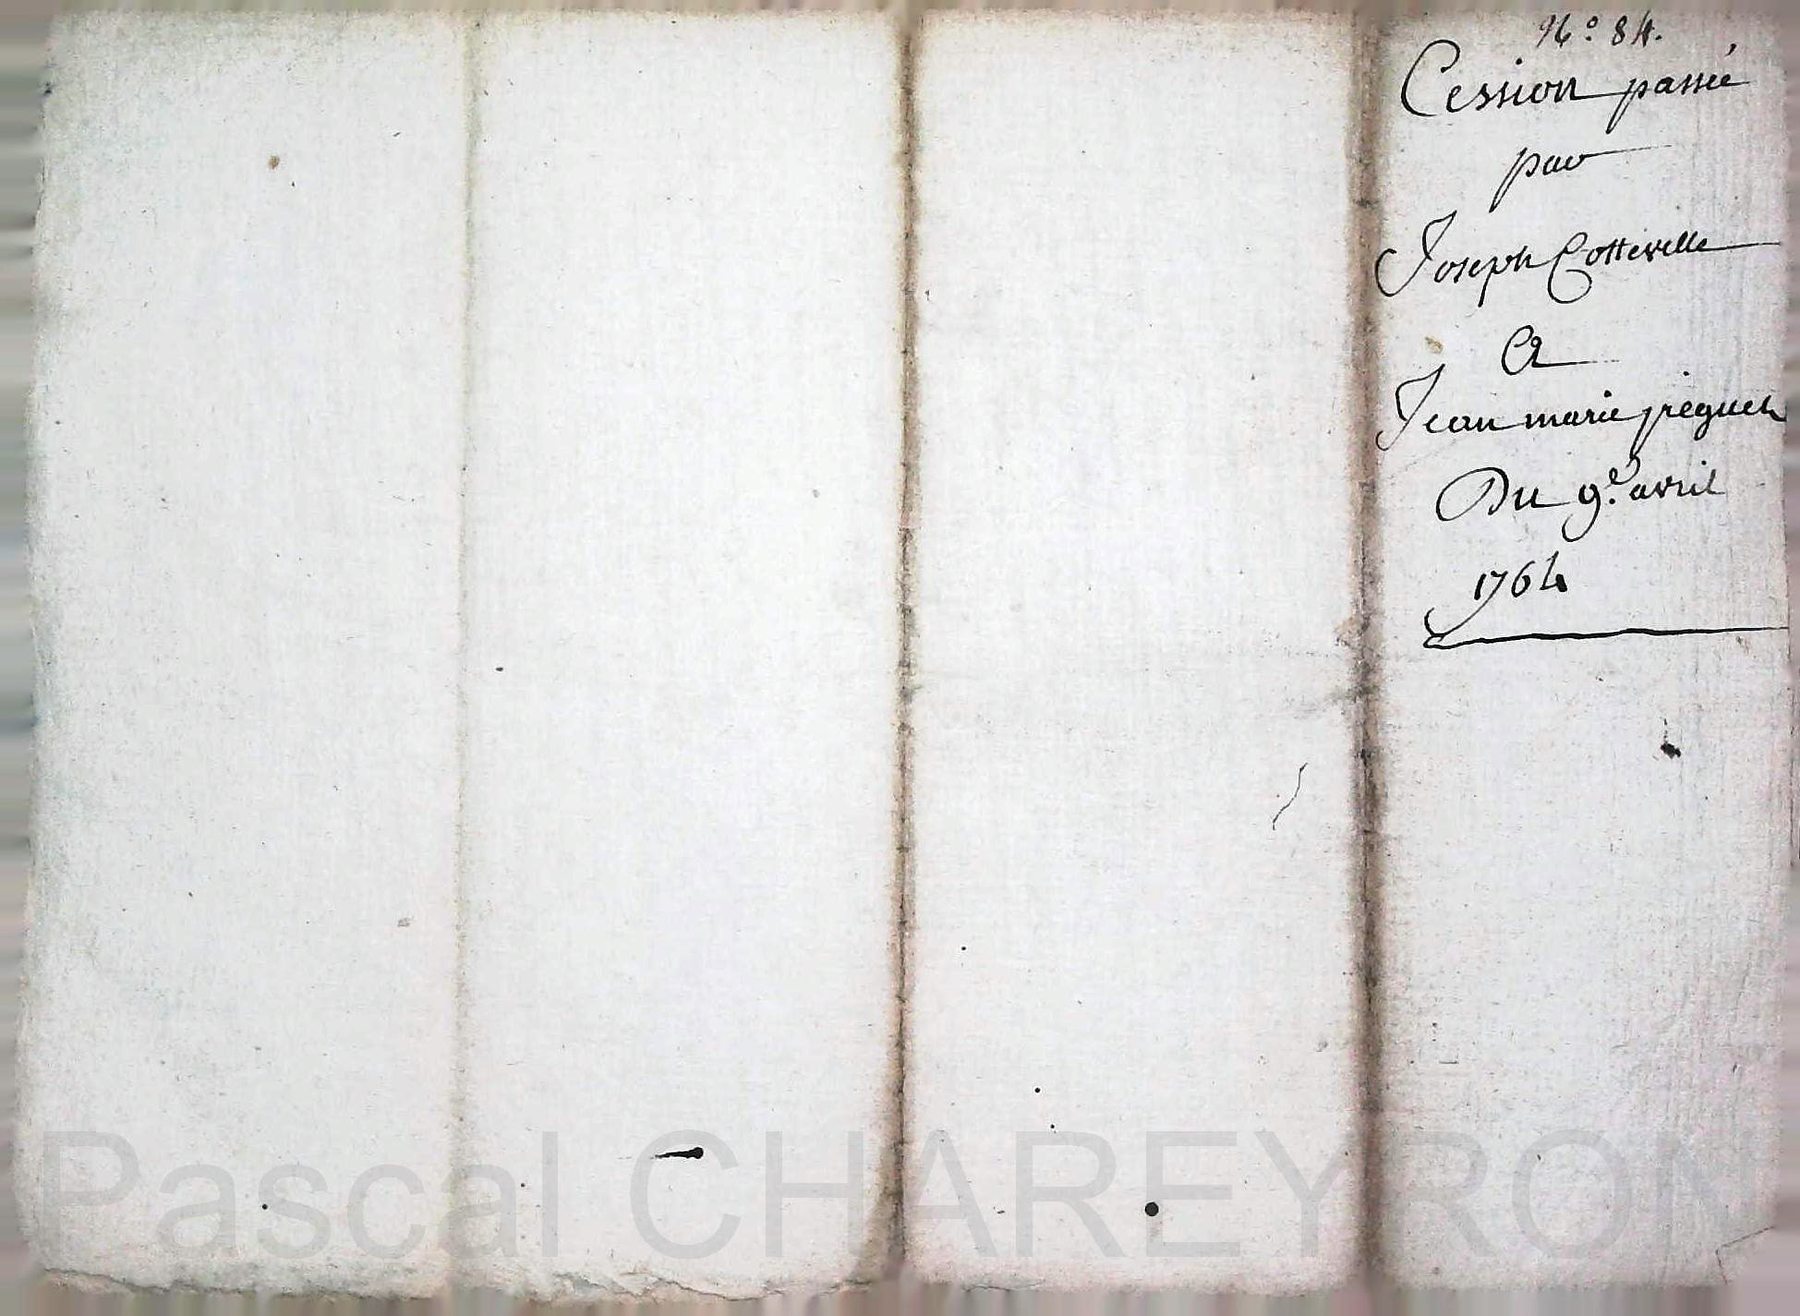 N.° 84.
Cession passée
par
Joseph Cotteville
A
Jean marie preguet
Du 9.e avril
1764
Pascal CHAREYRON